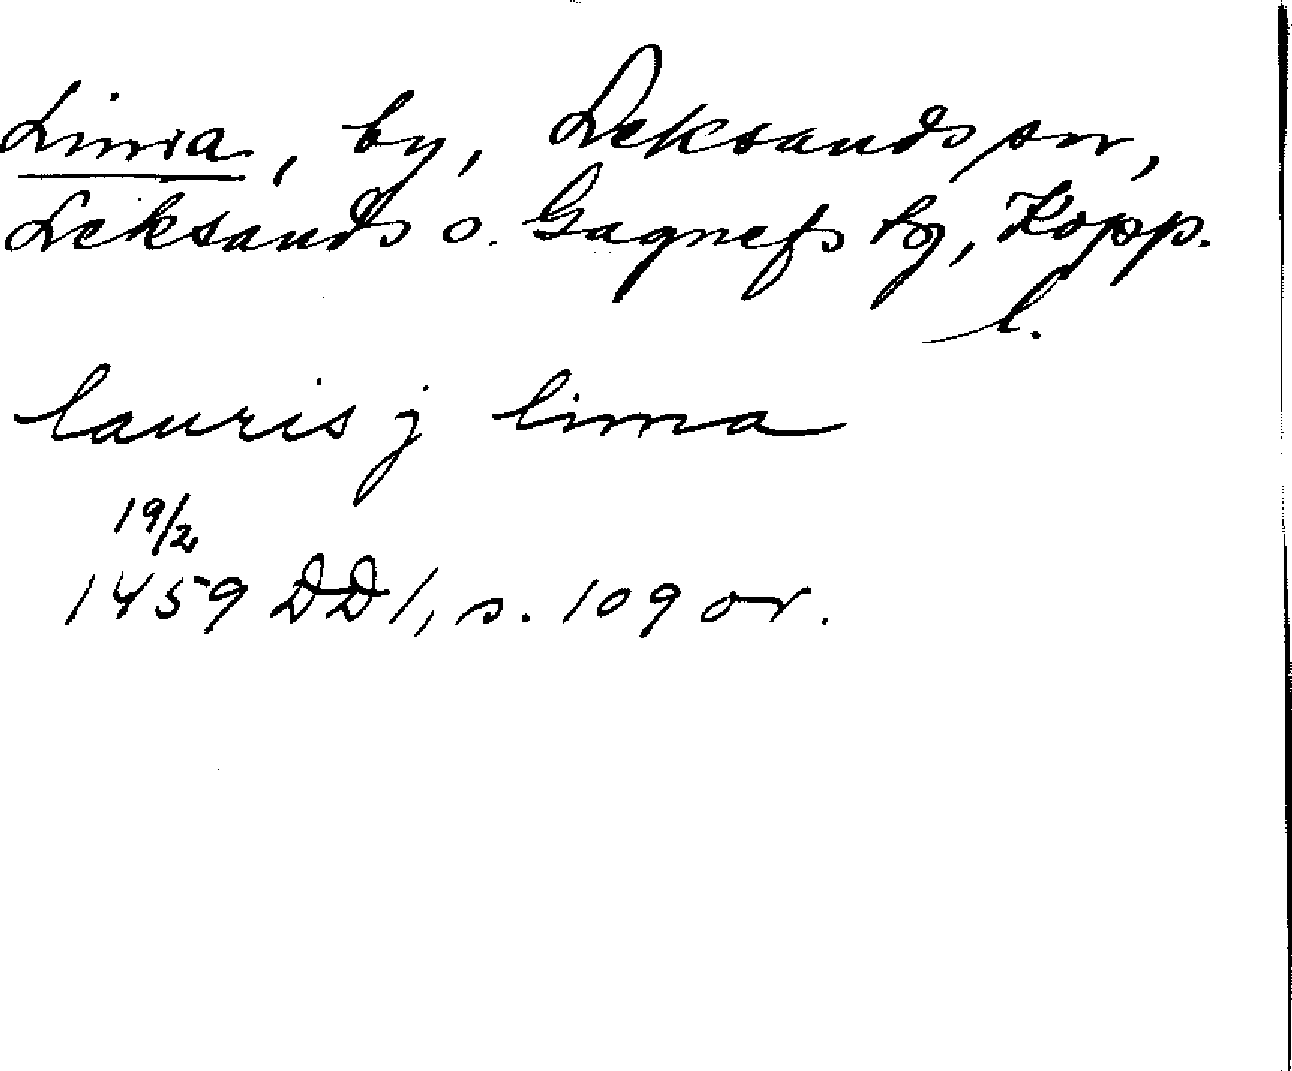 Lima, by, Leksands sn,
Leksands o. Gagnefs tg, Kopp.
l.
lauris j lima
19/2
1459 DD1, s. 109 or.